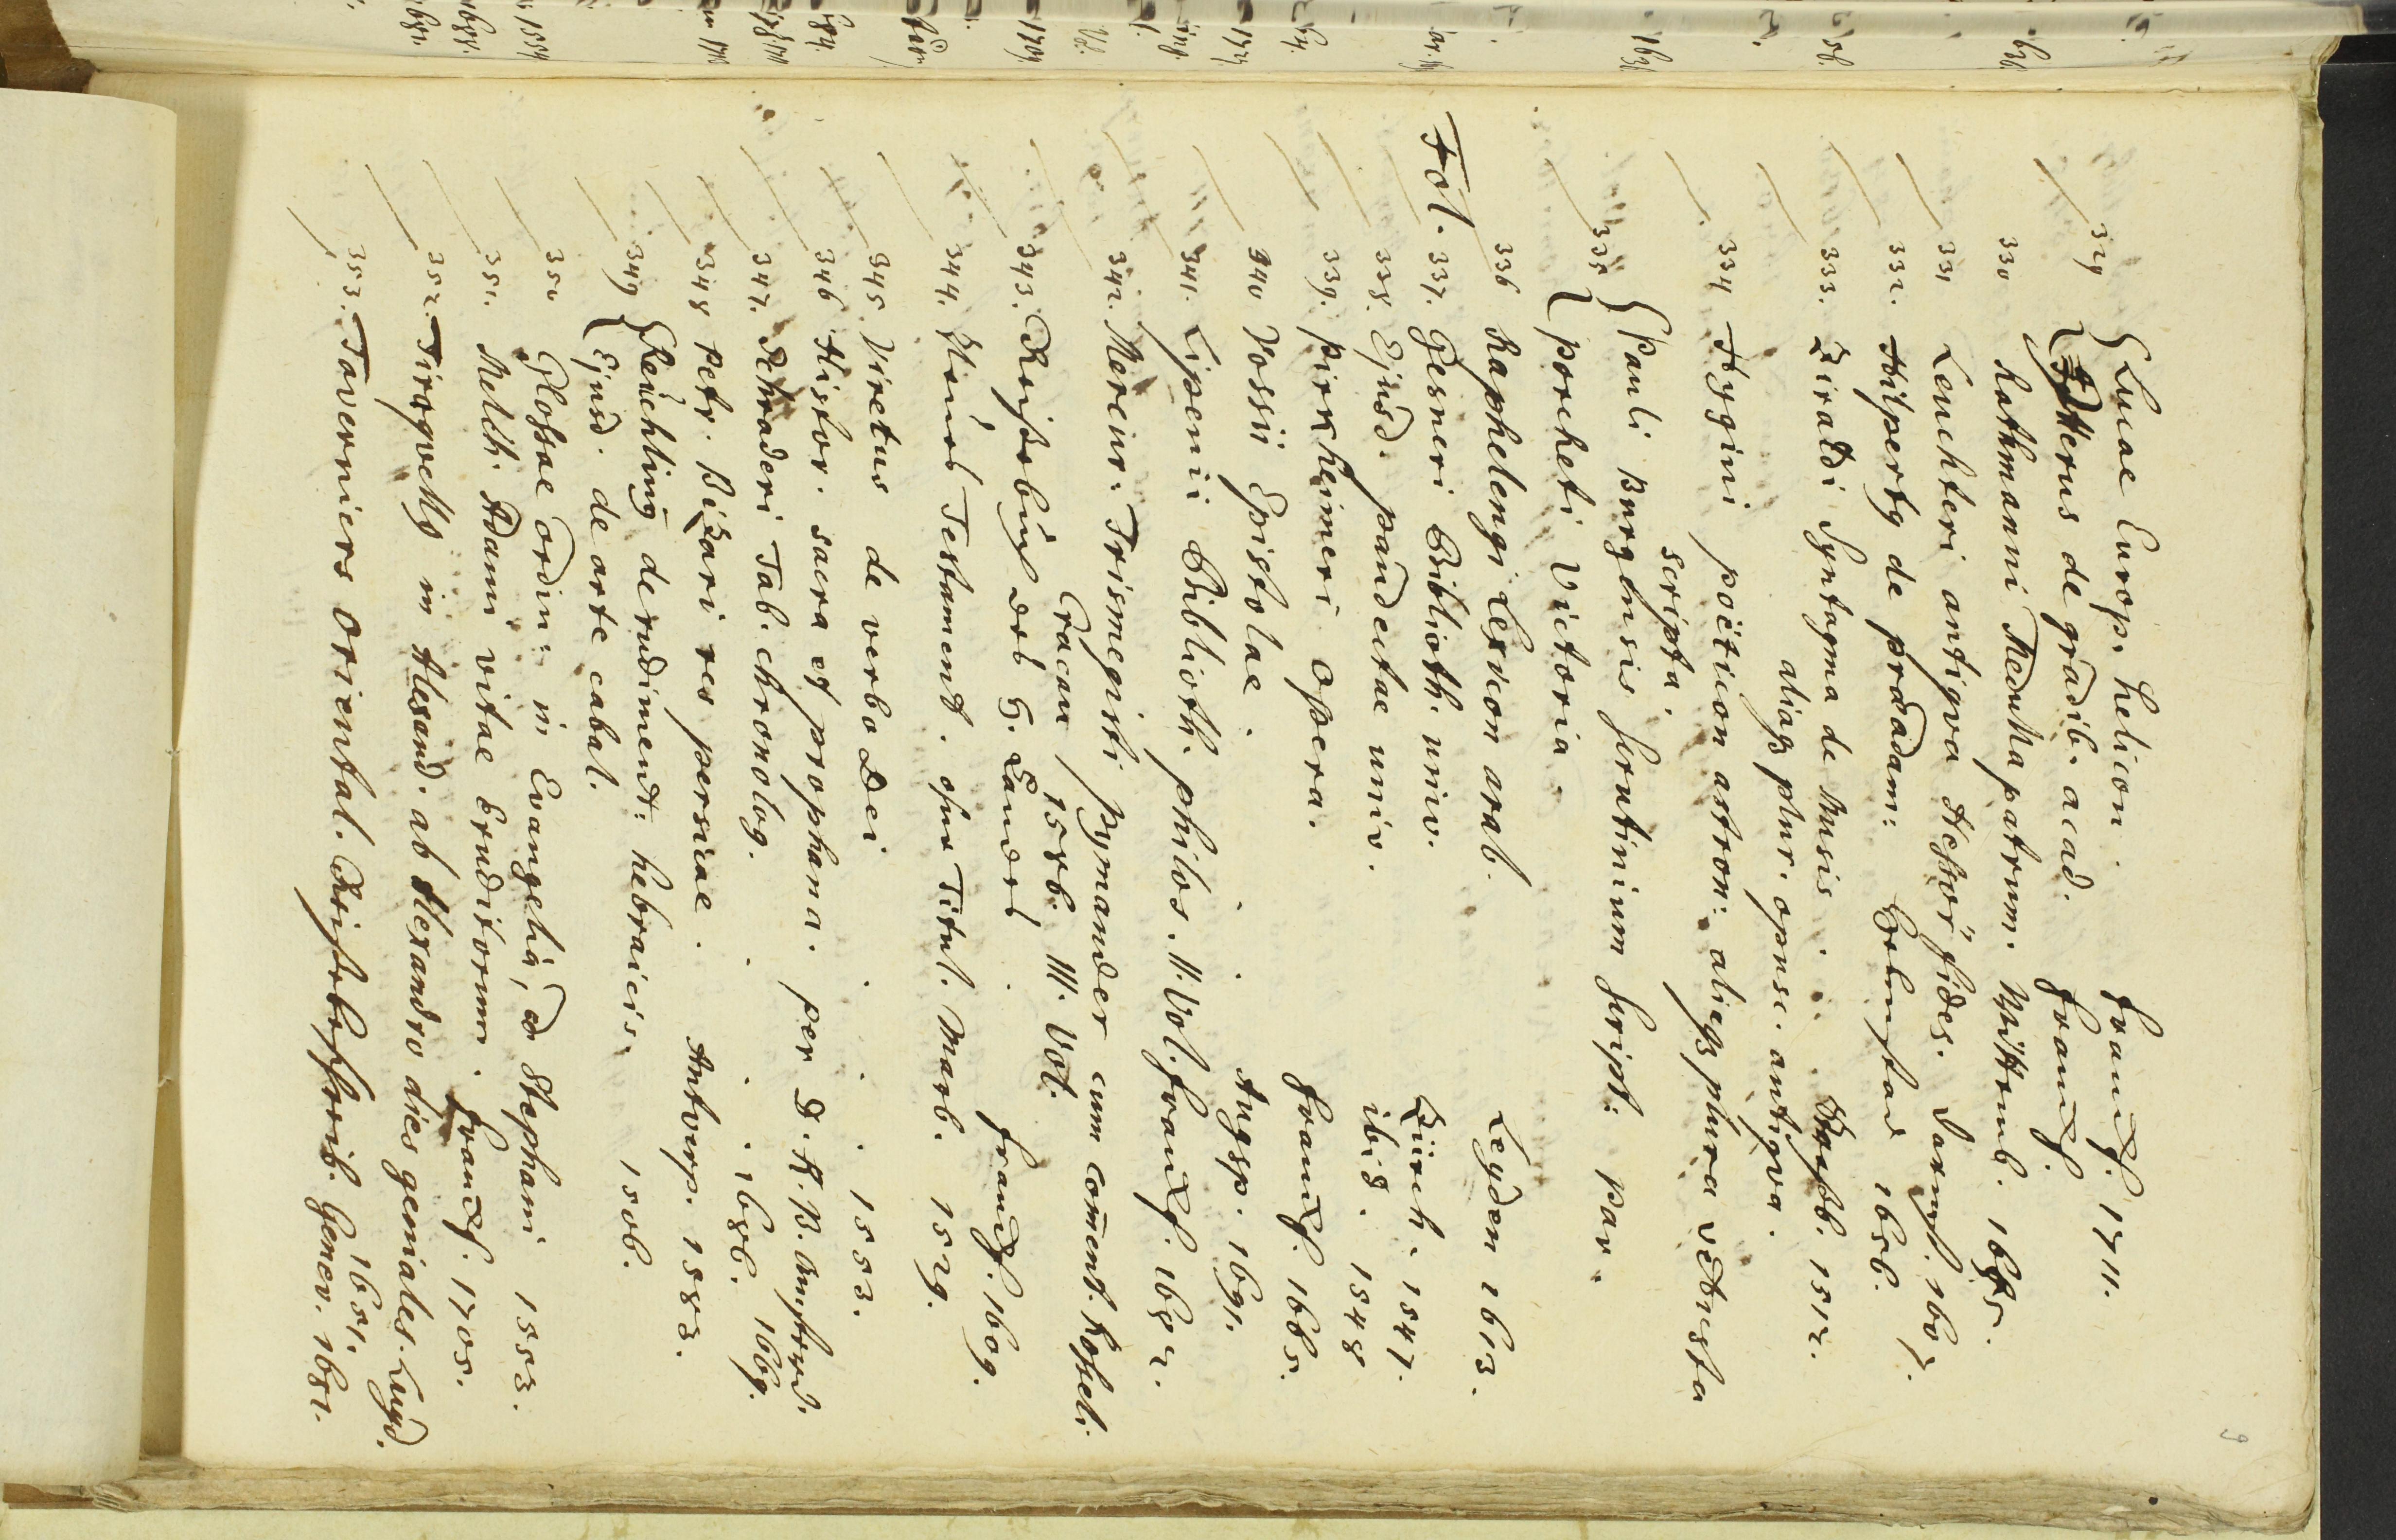 9
329 { Lucae Europ. Helicon. Francf. 1711.
{ Itterus de gradib. acad. Francf.
330 Rathmanni Medulla patrum. Wittenb. 1685.
331 Leuchteri antiqva Hessor. fides. Darmst. 1607.
332. Hilperty de præadam: Helmstad 1656.
333. Ziraldi Syntagma de Musis . . . Strasb. 1512.
aliaq plur. opusc. antiqva.
334 Hygini poëticon astron: aliaq plura vetusta
scripta.
335 { Pauli Burgensis scrutinium script: par.
{ porcheti Victoria.
336 Raphelengi Lexicon arab. Leyden 1613.
Fol. 337. Gesneri Biblioth. univ. Zürch. 1547.
338. Ejusd. pandectae univ. ibid. 1548
339. pirckheimeri opera. Francf. 1665.
340 Vossii Epistolae. Augsp. 1691.
341. Lipenii Biblioth. philos. II. Vol. Francf. 1682.
342. Mercur. Trismegisti pymander cum coment. Rosseli.
Cracau 1586. III. Vol.
343. Reisebuch des h. Landes. Francf. 1609.
344. Neues Testament. ohne Titul. Marb. 1529.
345. Viretus de verbo Dei . . . 1553.
346 Histor. sacra et prophana. per D. K. B. Amsterd.
347. Schraderi Tab. chronolog. . . . 1686. 1669.
348 Petr. Bizari res persicae. Antverp. 1583.
349 { Reuchling de rudiment: hebraicis. 1506.
{ Ejusd. de arte cabal.
350 Glossae ordin: in Evangelia, ed Stephani 1553.
351. Melch. Adami vitae Eruditorum. Francf. 1705.
352. Tiraqvelly in Alexand. ab Alexandro dies geniales. Lugd.
1651.
353. Taverniers oriental. Reisebeschreib. Genev. 1681.